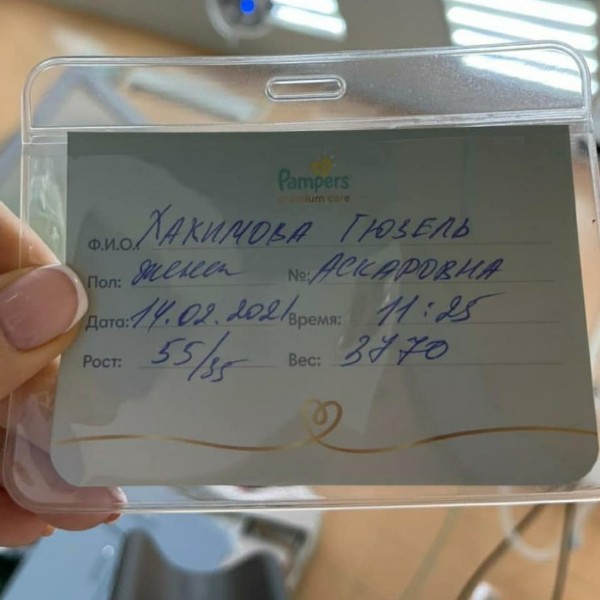 Pampers
premium care
Ф.И.О.: ХАКИМОВА ГЮЗЕЛЬ
Пол: женск №: АСКАРОВНА
Дата: 14.02.2021 Время: 11:25
Рост: 55/35 Вес: 3770